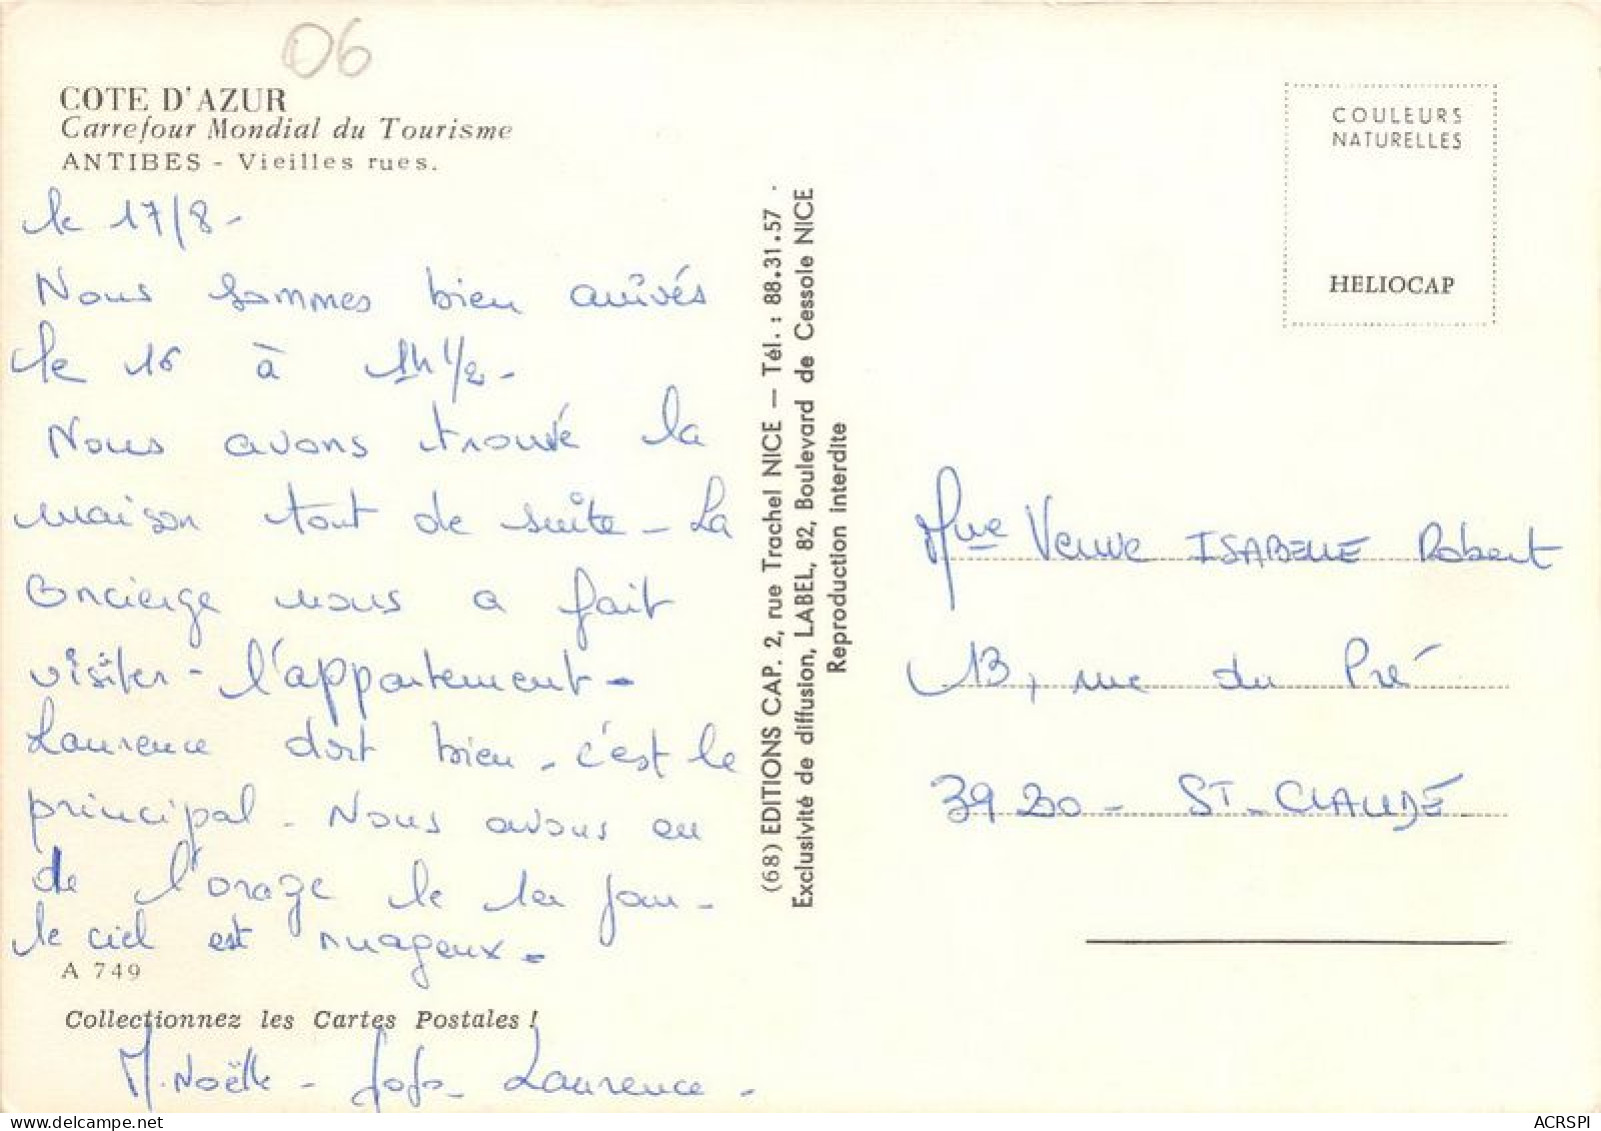 06
COTE D'AZUR
Carrefour Mondial du Tourisme
ANTIBES - Vieilles rues.
le 17/8 -
Nous sommes bien arrivés
le 16 à 1h 1/2 -
Nous avons trouvé la
maison tout de suite - La
concierge nous a fait
visiter - l'appartement -
Laurence dort bien - c'est le
principal - Nous avons eu
de l'orage le 1er jour -
le ciel est nuageux -
A 749
Collectionnez les Cartes Postales !
M.Noëlle - Jojo - Laurence -
(68) EDITIONS CAP. 2, rue Trachel NICE — Tél. : 88.31.57 .
Exclusivité de diffusion, LABEL, 82, Boulevard de Cessole NICE
Reproduction interdite
COULEURS
NATURELLES
HELIOCAP
Mme Veuve ISABELLE Robert
13, rue du Pré
39200 - ST-CLAUDE
ACRSPI